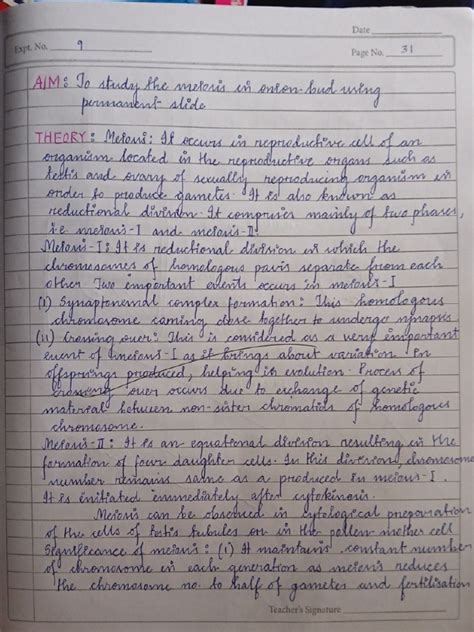 Date
Expt. No. 9
Page No. 31
AIM: To study the meiosis in onion bud using
permanent slide
THEORY: Meiosis: It occurs in reproductive cell of an
organism located in the reproductive organs such as
testis and ovary of sexually reproducing organism in
order to produce gametes. It is also known as
reductional division. It comprises mainly of two phases,
i.e meiosis-I and meiosis-II.
Meiosis-I: It is reductional division in which the
chromosomes of homologous pairs separate from each
other. Two important events occurs in meiosis-I
(i) Synaptonemal complex formation: This homologous
chromosome coming close together to undergo synapsis
(ii) Crossing over: This is considered as a very important
event of meiosis-I as it brings about variation in
offsprings produced, helping in evolution. Process of
crossing over occurs due to exchange of genetic
material between non-sister chromatids of homologous
chromosome.
Meiosis-II: It is an equational division resulting in the
formation of four daughter cells. In this division, chromosome
number remains same as a produced in meiosis-I.
It is initiated immediately after cytokinesis.
Meiosis can be observed in cytological preparation
of the cells of testis tubules or in the pollen mother cell
Significance of meiosis: (1) It maintains constant number
of chromosome in each generation as meiosis reduces
the chromosome no. to half of gametes and fertilisation
Teacher's Signature